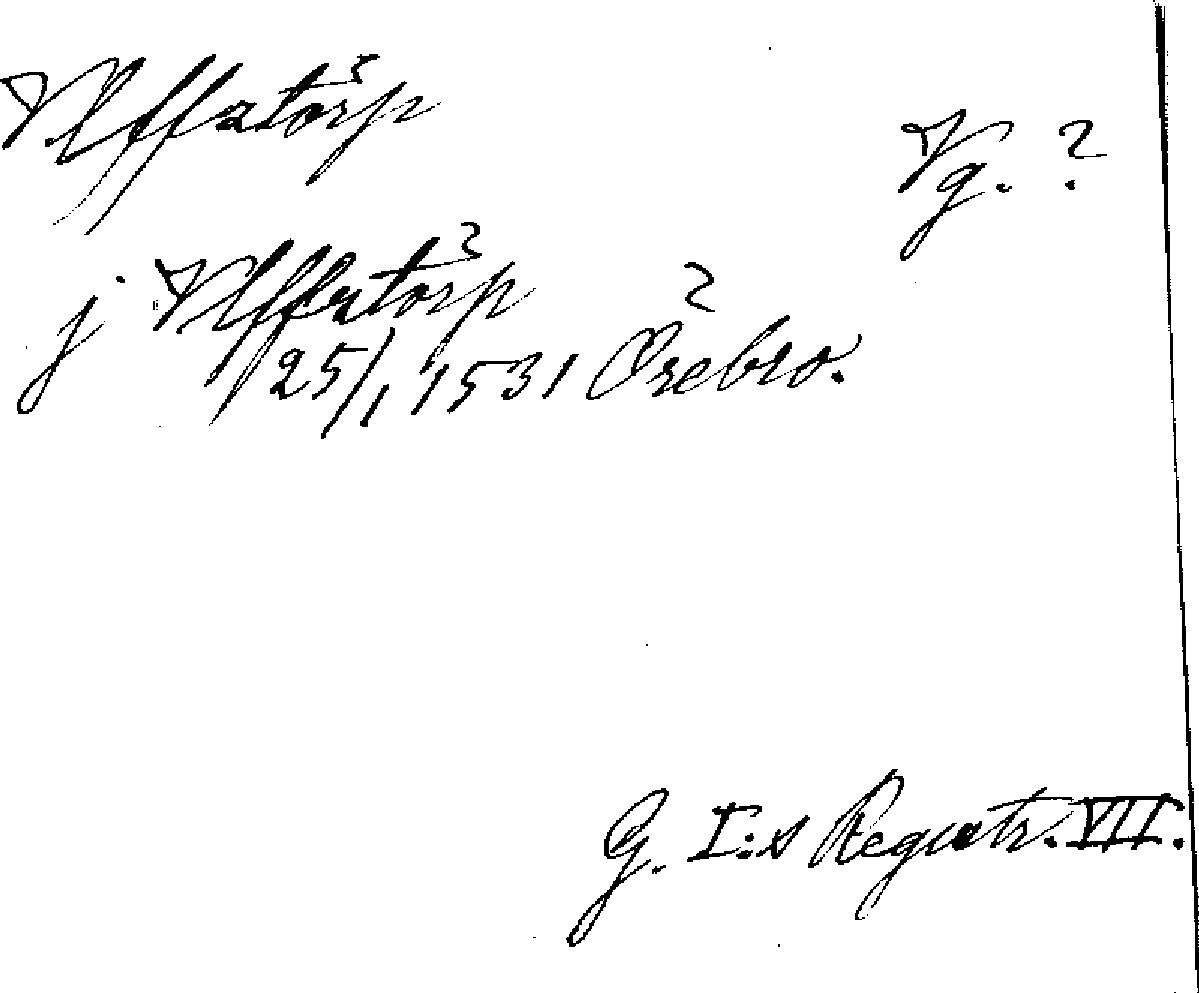 Vlffztörp
Vg. ?
j Vlffztörp
25/1 1531 Örebro.
G. I:s Registr. VII.